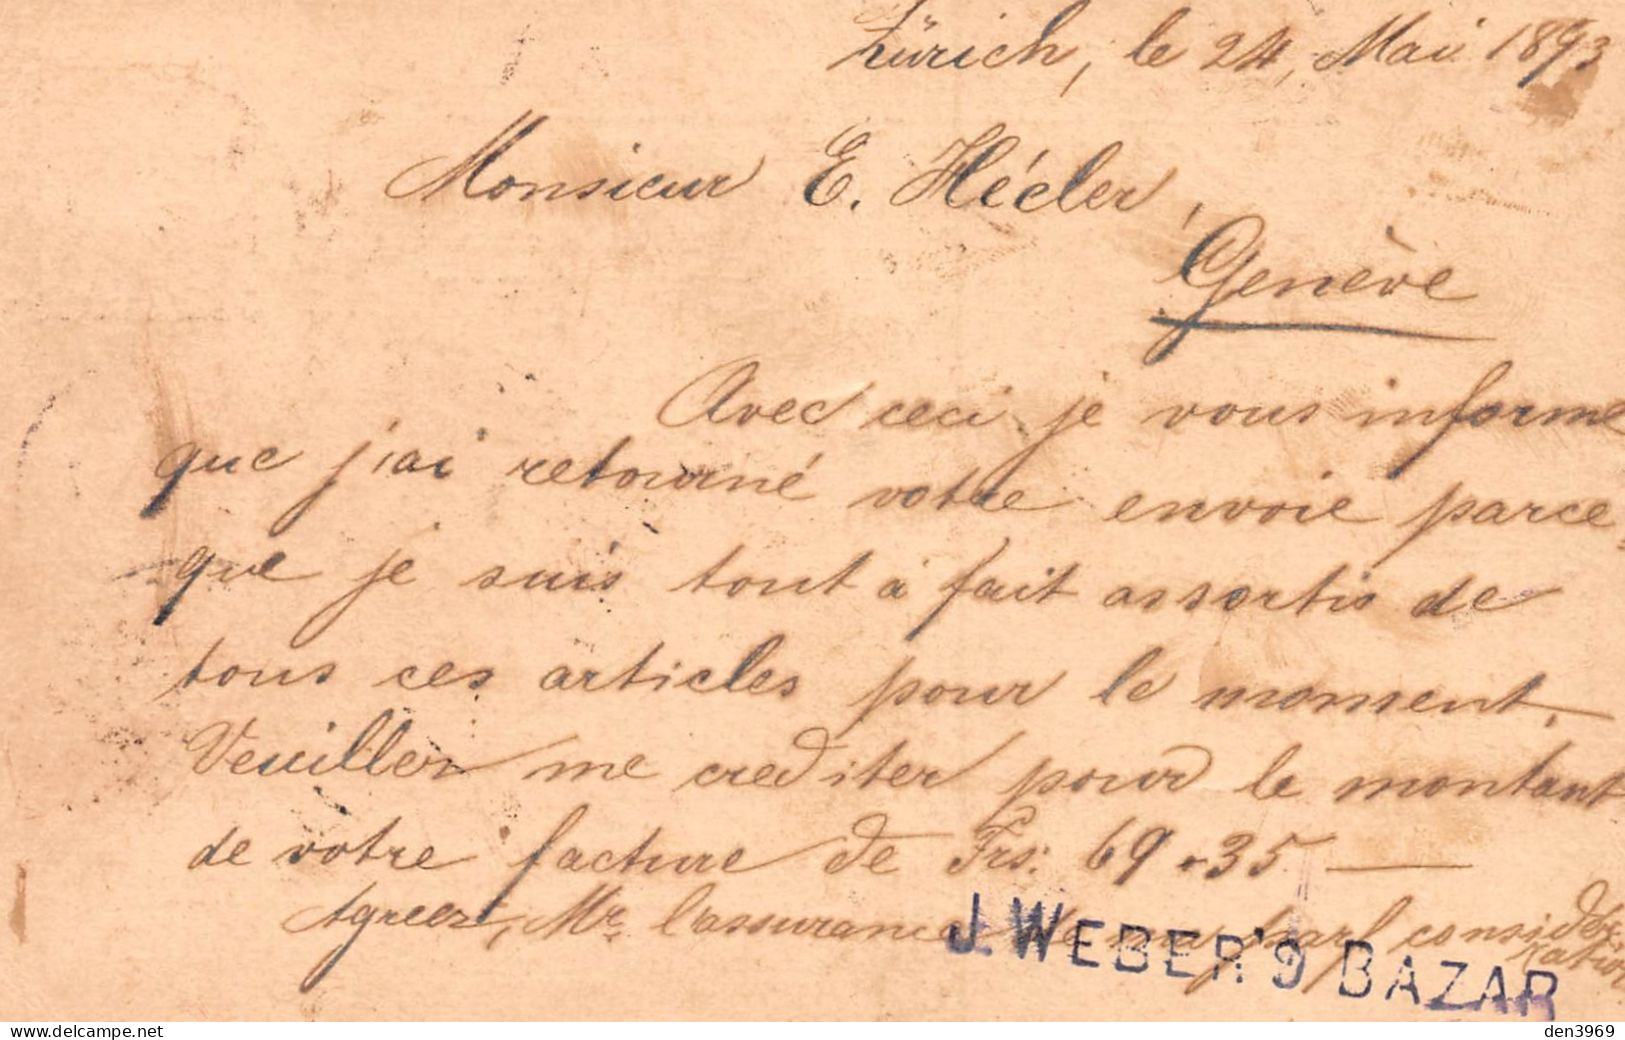 Zürich, le 24, Mai 1893
Monsieur E. Hécler,
Genève
Avec ceci je vous informe
que j'ai retourné votre envoie parce
que je suis tout à fait assortis de
tous ces articles pour le moment.
Veuillez me crediter pour le montant
de votre facture de Frs: 69.35 —
Agreez, Mr. l'assurance de ma parf consideration
J. WEBER'S BAZAR
den3969